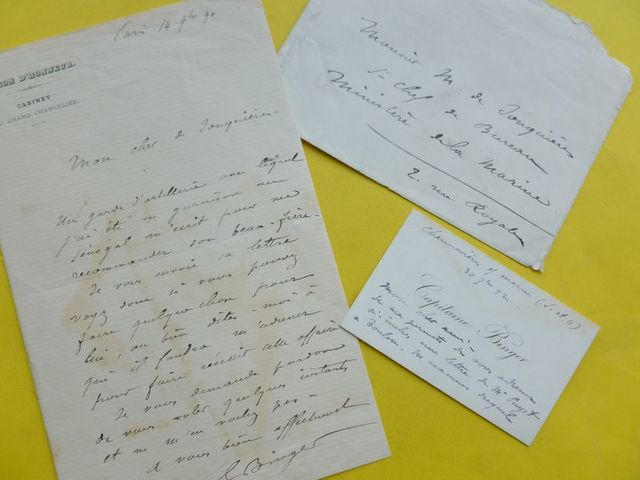 Paris 14 9bre 90
ION D'HONNEUR.
CABINET
GRAND CHANCELIER
Mon cher de Jonquières -
Un garde d'artillerie avec lequel
j'ai été en garnison au
Sénégal m'écrit pour me
recommander son beau-frère.
Je vous envoie sa lettre
voyez donc si vous pouvez
faire quelque chose pour
lui, ou bien dites-moi à
qui il faudra m'adresser
pour faire réussir cette affaire
Je vous demande pardon
de vous voler quelques instants
et ne m'en voulez pas -
A vous bien affectueust
Binger
Monsieur M. de Jonquières
S. chef de Bureau
Ministère de la Marine
2, rue Royale
Chennevières s/ marne (S. et O)
30 9bre 92
Capitaine Binger
Mon cher ami, vous adresser
Je me permets
ci-inclus une lettre de Mr
à Toulon,